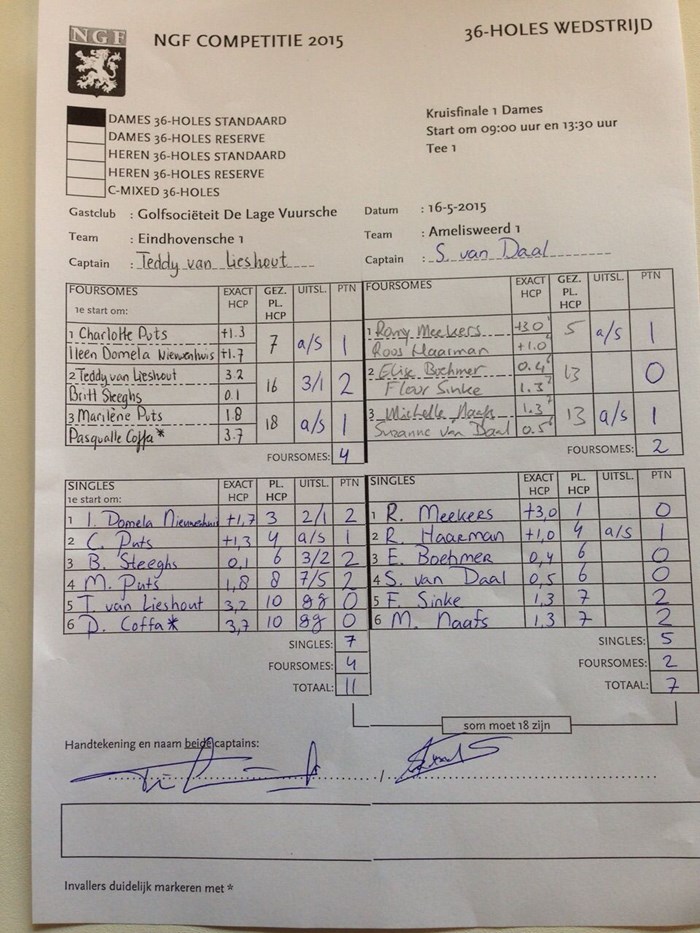 NGF
NGF COMPETITIE 2015
36-HOLES WEDSTRIJD
DAMES 36-HOLES STANDAARD
DAMES 36-HOLES RESERVE
HEREN 36-HOLES STANDAARD
HEREN 36-HOLES RESERVE
C-MIXED 36-HOLES
Kruisfinale 1 Dames
Start om 09:00 uur en 13:30 uur
Tee 1
Gastclub : Golfsociëteit De Lage Vuursche Datum : 16-5-2015
Team : Eindhovensche 1 Team : Amelisweerd 1
Captain : Teddy van Lieshout Captain : S. van Daal
FOURSOMES EXACT HCP GEZ. PL. HCP UITSL. PTN FOURSOMES EXACT HCP GEZ. PL. HCP UITSL. PTN
1e start om:
1 Charlotte Puts +1.3 7 a/s 1 1 Romy Meekers +3.0 5 a/s 1
Ileen Domela Nieuwenhuis +1.7 Roos Haarman +1.0
2 Teddy van Lieshout 3.2 16 3/1 2 2 Elise Boehmer 0.4 13 0
Britt Steeghs 0.1 Fleur Sinke 1.3
3 Marilène Puts 1.8 18 a/s 1 3 Michelle Naafs 1.3 13 a/s 1
Pasqualle Coffa* 3.7 Suzanne van Daal 0.5
FOURSOMES: 4 FOURSOMES: 2
SINGLES EXACT HCP PL. HCP UITSL. PTN SINGLES EXACT HCP PL. HCP UITSL. PTN
1e start om:
1 I. Domela Nieuwenhuis +1,7 3 2/1 2 1 R. Meekers +3,0 1 0
2 C. Puts +1,3 4 a/s 1 2 R. Haarman +1,0 4 a/s 1
3 B. Steeghs 0,1 6 3/2 2 3 E. Boehmer 0,4 6 0
4 M. Puts 1,8 8 7/5 2 4 S. van Daal 0,5 6 0
5 T. van Lieshout 3,2 10 gg 0 5 F. Sinke 1,3 7 2
6 D. Coffa* 3,7 10 gg 0 6 M. Naafs 1,3 7 2
SINGLES: 7 SINGLES: 5
FOURSOMES: 4 FOURSOMES: 2
TOTAAL: 11 TOTAAL: 7
som moet 18 zijn
Handtekening en naam beide captains:
/
Invallers duidelijk markeren met *